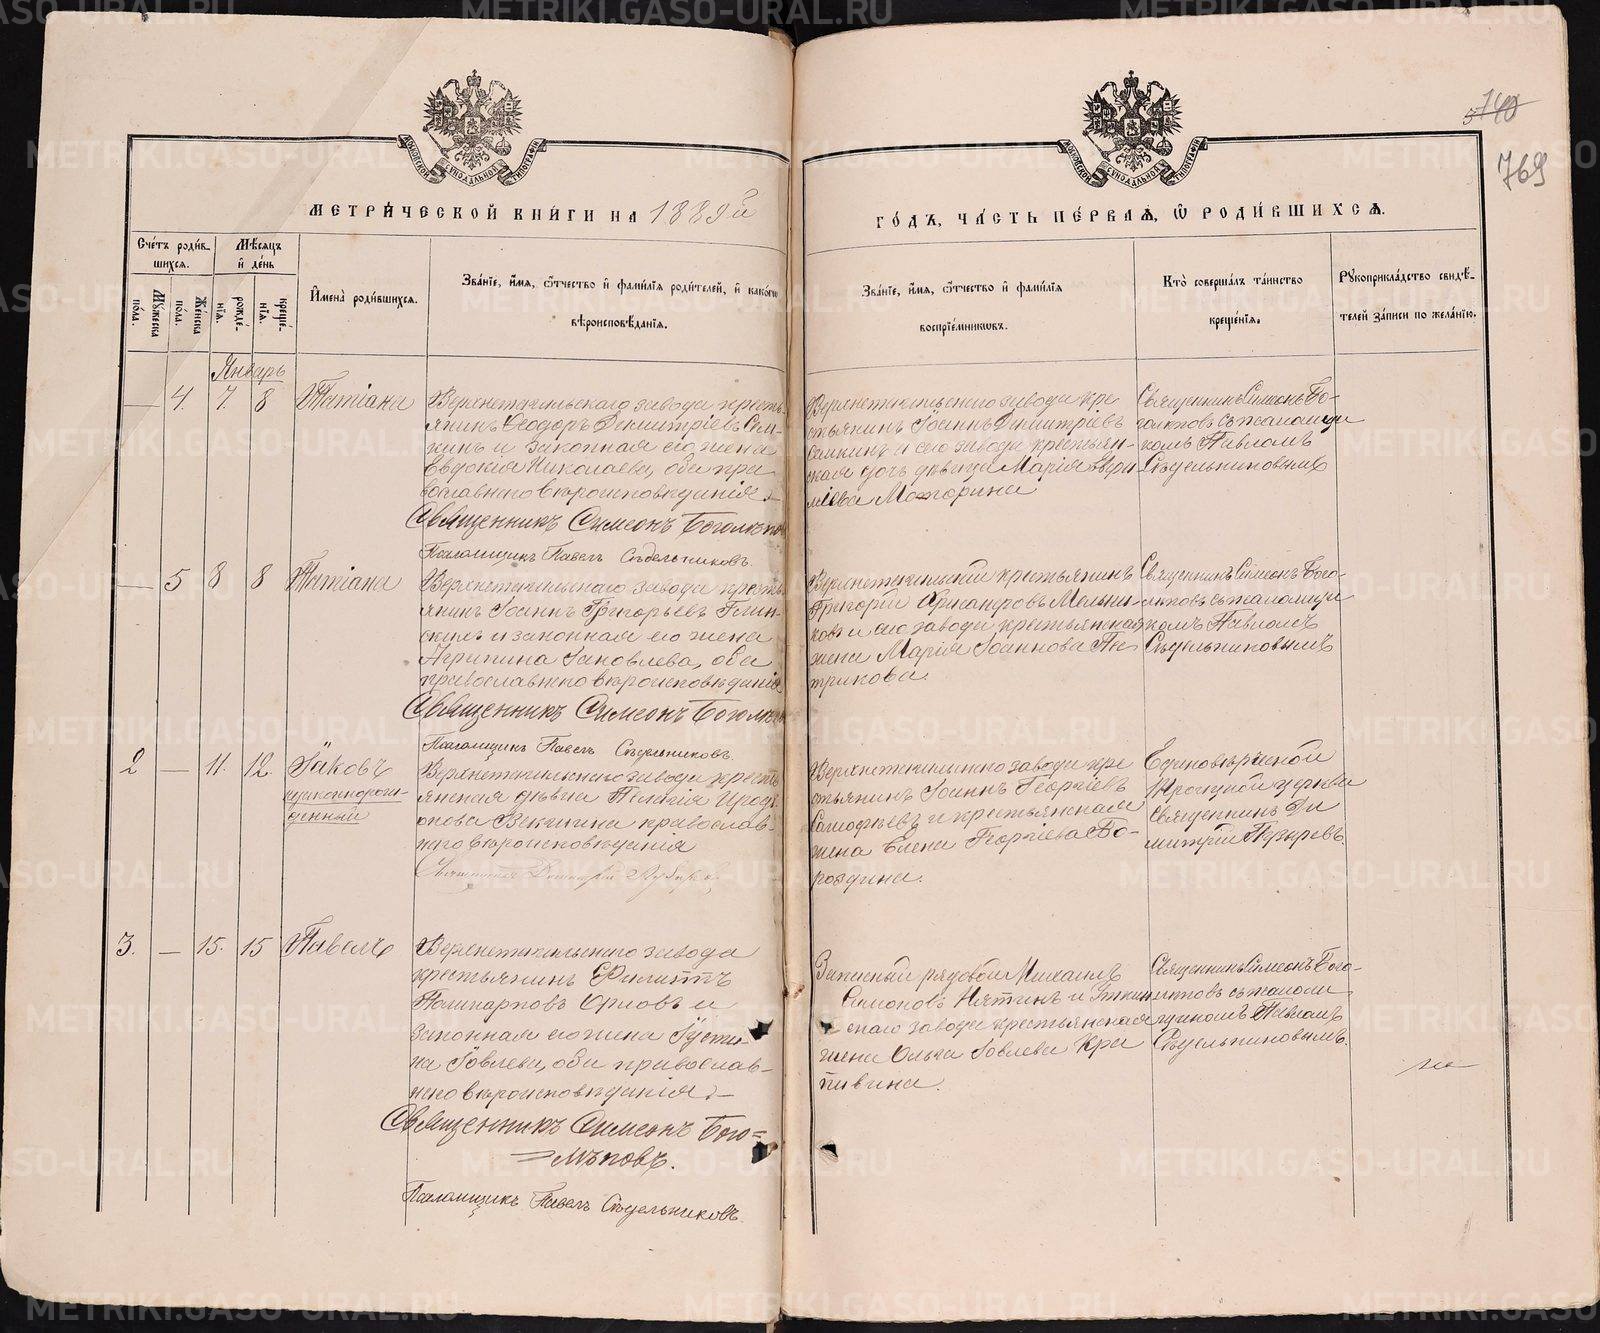 МЕТРИ́ЧЕСКОЙ КНИ́ГИ НА 1889й
ГО́ДЪ, ЧА́СТЬ ПЕ́РВАѦ, Ѡ҆ РОДИ́ВШИХСѦ.
769
Сче́тъ роди́в-
шихсѧ.
Мѣ́сѧцъ
и҆ де́нь
Мꙋ́жеска
по́ла.
Же́нска
по́ла.
рожде́-
нїѧ.
креще́-
нїѧ.
И҆мена̀ роди́вшихсѧ.
Зва́нїе, и҆́мѧ, ѻ҆́тчество и҆ фамѝлїѧ роди́телей, и҆ како́гѡ
вѣроисповѣ́данїѧ.
Зва́нїе, и҆́мѧ, ѻ҆́тчество и҆ фамѝлїѧ
воспрїе́мникѡвъ.
Кто̀ соверша́лъ та́инство
креще́нїѧ.
Рꙋкоприкла́дство свидѣ́-
телей за́писи по жела́нїю.
Январь
— 4. 7. 8 Татіана
Верхнетагильскаго завода кресть-
янинъ Ѳеодоръ Димитріевъ Сам-
кинъ и законная его жена
Евдокія Николаева, оба пра-
вославнаго вѣроисповѣданія.—
Священникъ Симеонъ Боголѣпов
Псаломщикъ Павелъ Сѣдельниковъ.
Верхнетагильскаго завода кре
стьянинъ Іоаннъ Димитріевъ
Самкинъ и сего завода крестьян-
ская дочь дѣвица Марія
Моторина
Священникъ Симеонъ Бо-
голѣповъ съ псаломщи
комъ Павломъ
Сѣдельниковымъ
— 5 8 8 Татіана
Верхнетагильскаго завода кресть
янинъ Іоаннъ Григорьевъ
и законная его жена
Агрипина Іаковлева, оба
православнаго вѣроисповѣданія
Священникъ Симеонъ Боголѣпов
Псаломщикъ Павелъ Сѣдельниковъ.
Верхнетагильскій крестьянинъ
Григорій Мельни-
ковъ и сего завода крестьянская
жена Марія Іоаннова Пе
трикова.
Священникъ Симеонъ Бого-
лѣповъ съ псаломщи
комъ Павломъ
Сѣдельниковымъ
2 — 11. 12. Іаковъ
незаконнорож-
денный
Верхнетагильскаго завода кресть
янская дѣвка Пелагія Иродi
онова Векшина православ-
наго вѣроисповѣданія
Священникъ Димитрій Пузыревъ
Верхнетагильскаго завода кре
стьянинъ Іоаннъ Георгіевъ
и крестьянская
жена Елена Георгіева Бо-
роздина.
Единовѣрческой
Троицкой церкви
Священникъ Ди
митрій Пузыревъ.
3. — 15. 15 Павелъ
Верхнетагильскаго завода
крестьянинъ Филиппъ
Поликарповъ Орловъ и
законная его жена Іусти-
на Іовлева, оба православ-
наго вѣроисповѣданія.—
Священникъ Симеонъ Бого=
=лѣповъ.
Псаломщикъ Павелъ Сѣдельниковъ.
Запасный рядовой Михаилъ
Симоновъ Нятинъ и Уткин
скаго завода крестьянская
жена Ольга Іовлева Кра
пивина.
Священникъ Симеонъ Бого-
лѣповъ съ псалом
щикомъ Павломъ
Сѣдельниковымъ.